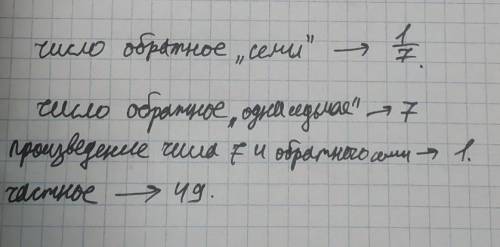 число обратное „семи" → 1/7.
число обратное „одна седьмая" → 7
произведение числа 7 и обратного семи → 1.
частное → 49.